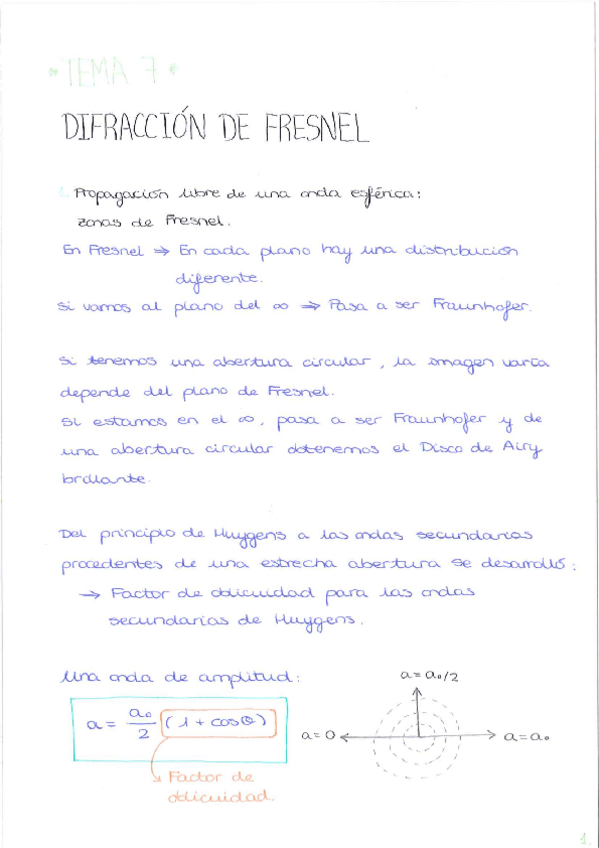 * TEMA 7 *
DIFRACCIÓN DE FRESNEL
1. Propagación libre de una onda esférica:
zonas de Fresnel.
En Fresnel ⇒ En cada plano hay una distribución
diferente.
Si vamos al plano del ∞ ⇒ Pasa a ser Fraunhofer.
Si tenemos una abertura circular, la imagen varía
depende del plano de Fresnel.
Si estamos en el ∞, pasa a ser Fraunhofer y de
una abertura circular obtenemos el Disco de Airy
brillante.
Del principio de Huygens a las ondas secundarias
procedentes de una estrecha abertura se desarrolló:
→ Factor de oblicuidad para las ondas
secundarias de Huygens.
Una onda de amplitud:
a = a₀/2 (1 + cosθ)
Factor de
oblicuidad.
a = a₀/2
a = 0
a = a₀
1.